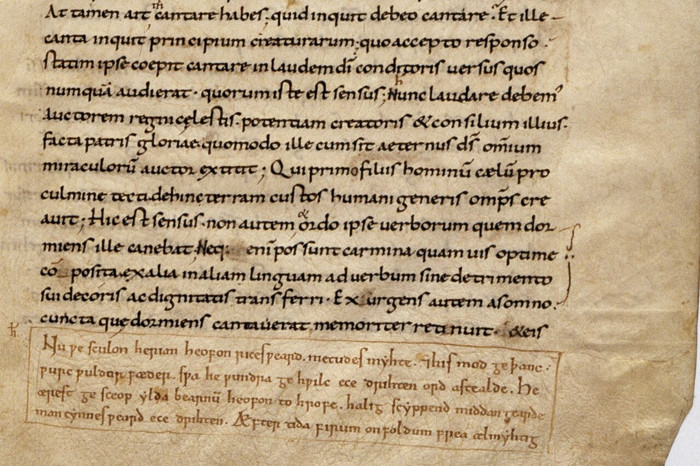 At tamen ait m̅ cantare habes; quid inquit debeo cantare? Et ille
canta inquit principium creaturarum; quo accepto responso.
statim ipse coepit cantare in laudem dī conditoris versus quos
numquā audierat. quorum iste est sensus; Nunc laudare debem'
auctorem regni cęlestis. potentiam creatoris & consilium illius.
facta patris gloriae. quomodo ille cum sit aeternus ds̄ om̄ium
miraculorū auctor extitit; Qui primo filiis hominū cælū pro
culmine tecti. dehinc terram custos humani generis omp̄s cre
avit; Hic est sensus. non autem ordo ipse verborum quem dor
miens ille canebat. Neq; eni possunt carmina quamvis optime
cō posita. ex alia in aliam linguam ad verbum sine detrimento
sui decoris ac dignitatis transferri. Exurgens autem a somno.
cuncta que dormiens cantaverat. memoriter retinuit. & eis
Nu ƿe sculon herian heofon rices ƿeard. metudes myhte. ⁊ his mod geþanc.
ƿurc ƿuldor fæder. sƿa he ƿundra gehƿilc ece drihten ord astealde. He
ærest gesceop ylda bearnū heofon to hrofe. halig scyppend middangearde
mancynnes ƿeard ece drihten. Æfter tida firum on foldum frea ælmyhtig